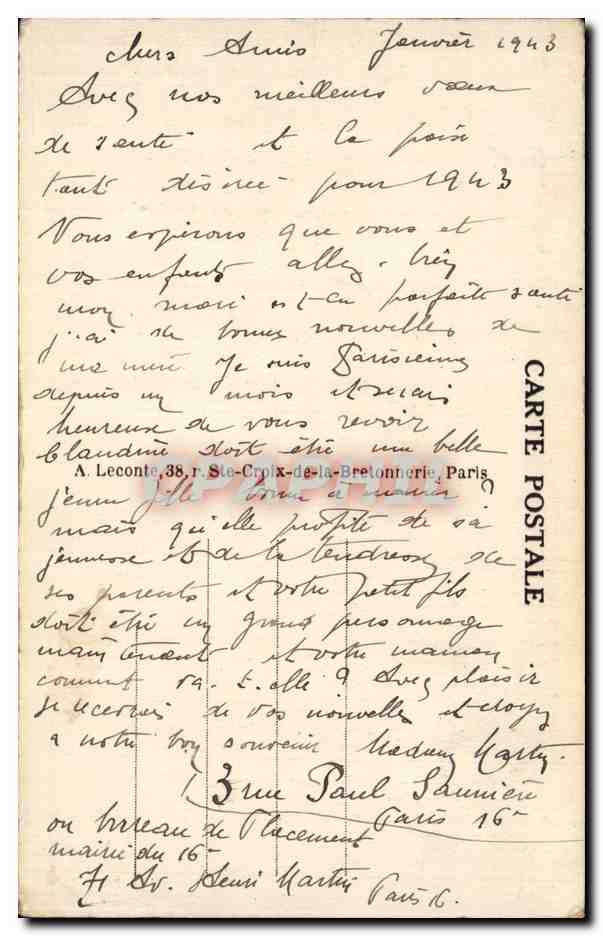 chers Amis Janvier 1943
Avec nos meilleurs vœux
de santé et la paix
tant désirée pour 1943
Nous espérons que vous et
vos enfants allez bien
mon mari est en parfaite santé
j'ai de bonnes nouvelles de
ma mère Je suis Parisienne
depuis un mois et serais
heureuse de vous revoir
Claudine doit être une belle
A. Leconte, 38, r. Ste-Croix-de-la-Bretonnerie, Paris
jeune fille bonne à marier ?
mais qu'elle profite de sa
jeunesse et de la tendresse de
ses parents et votre petit fils
doit être un grand personnage
maintenant et votre maman
comment va-t-elle ? Avec plaisir
je recevrais de vos nouvelles et croyez
a notre bon souvenir Madame Martin.
3 rue Paul Saunière
Paris 16
ou bureau de Placement
mairie du 16
71 Av. Henri Martin Paris 16.
CARTE POSTALE
CPAPHIL